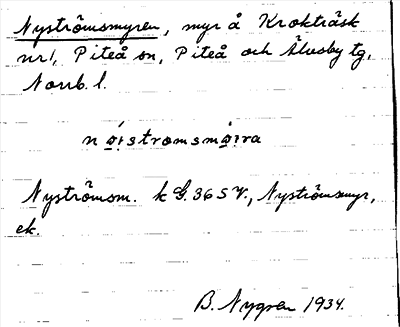 Nyströmsmyren, myr å Krokträsk
nr 1, Piteå sn, Piteå och Älvsby tg,
Norrb. l.
Nyströmsm. k G. 36 S V., Nyströmsmyr,
ek.
B. Nygren 1934.